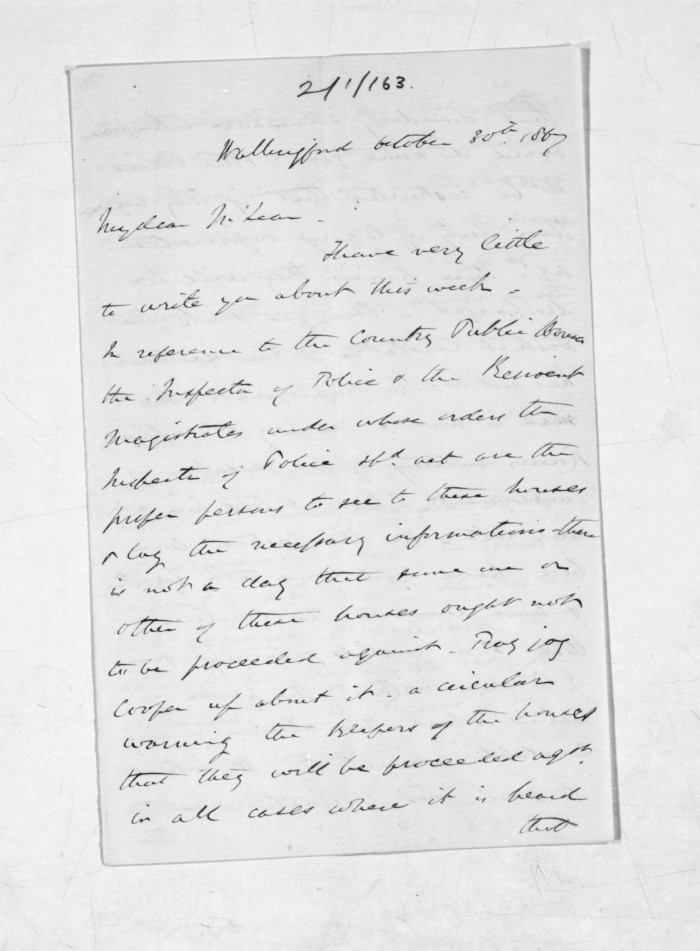 2/1/163.
Wallingford October 30th 1867
My dear McLean -
I have very little
to write you about this week -
In reference to the Country Public Houses
the Inspector of Police & the Resident
Magistrates under whose orders the
Inspector of Police shd. act are the
proper persons to see to these houses
& lay the necessary informations - there
is not a day that some one or
other of these houses ought not
to be proceeded against - Pray jog
Cooper up about it - a circular
warning the keepers of the houses
that they will be proceeded agst.
in all cases where it is heard
that